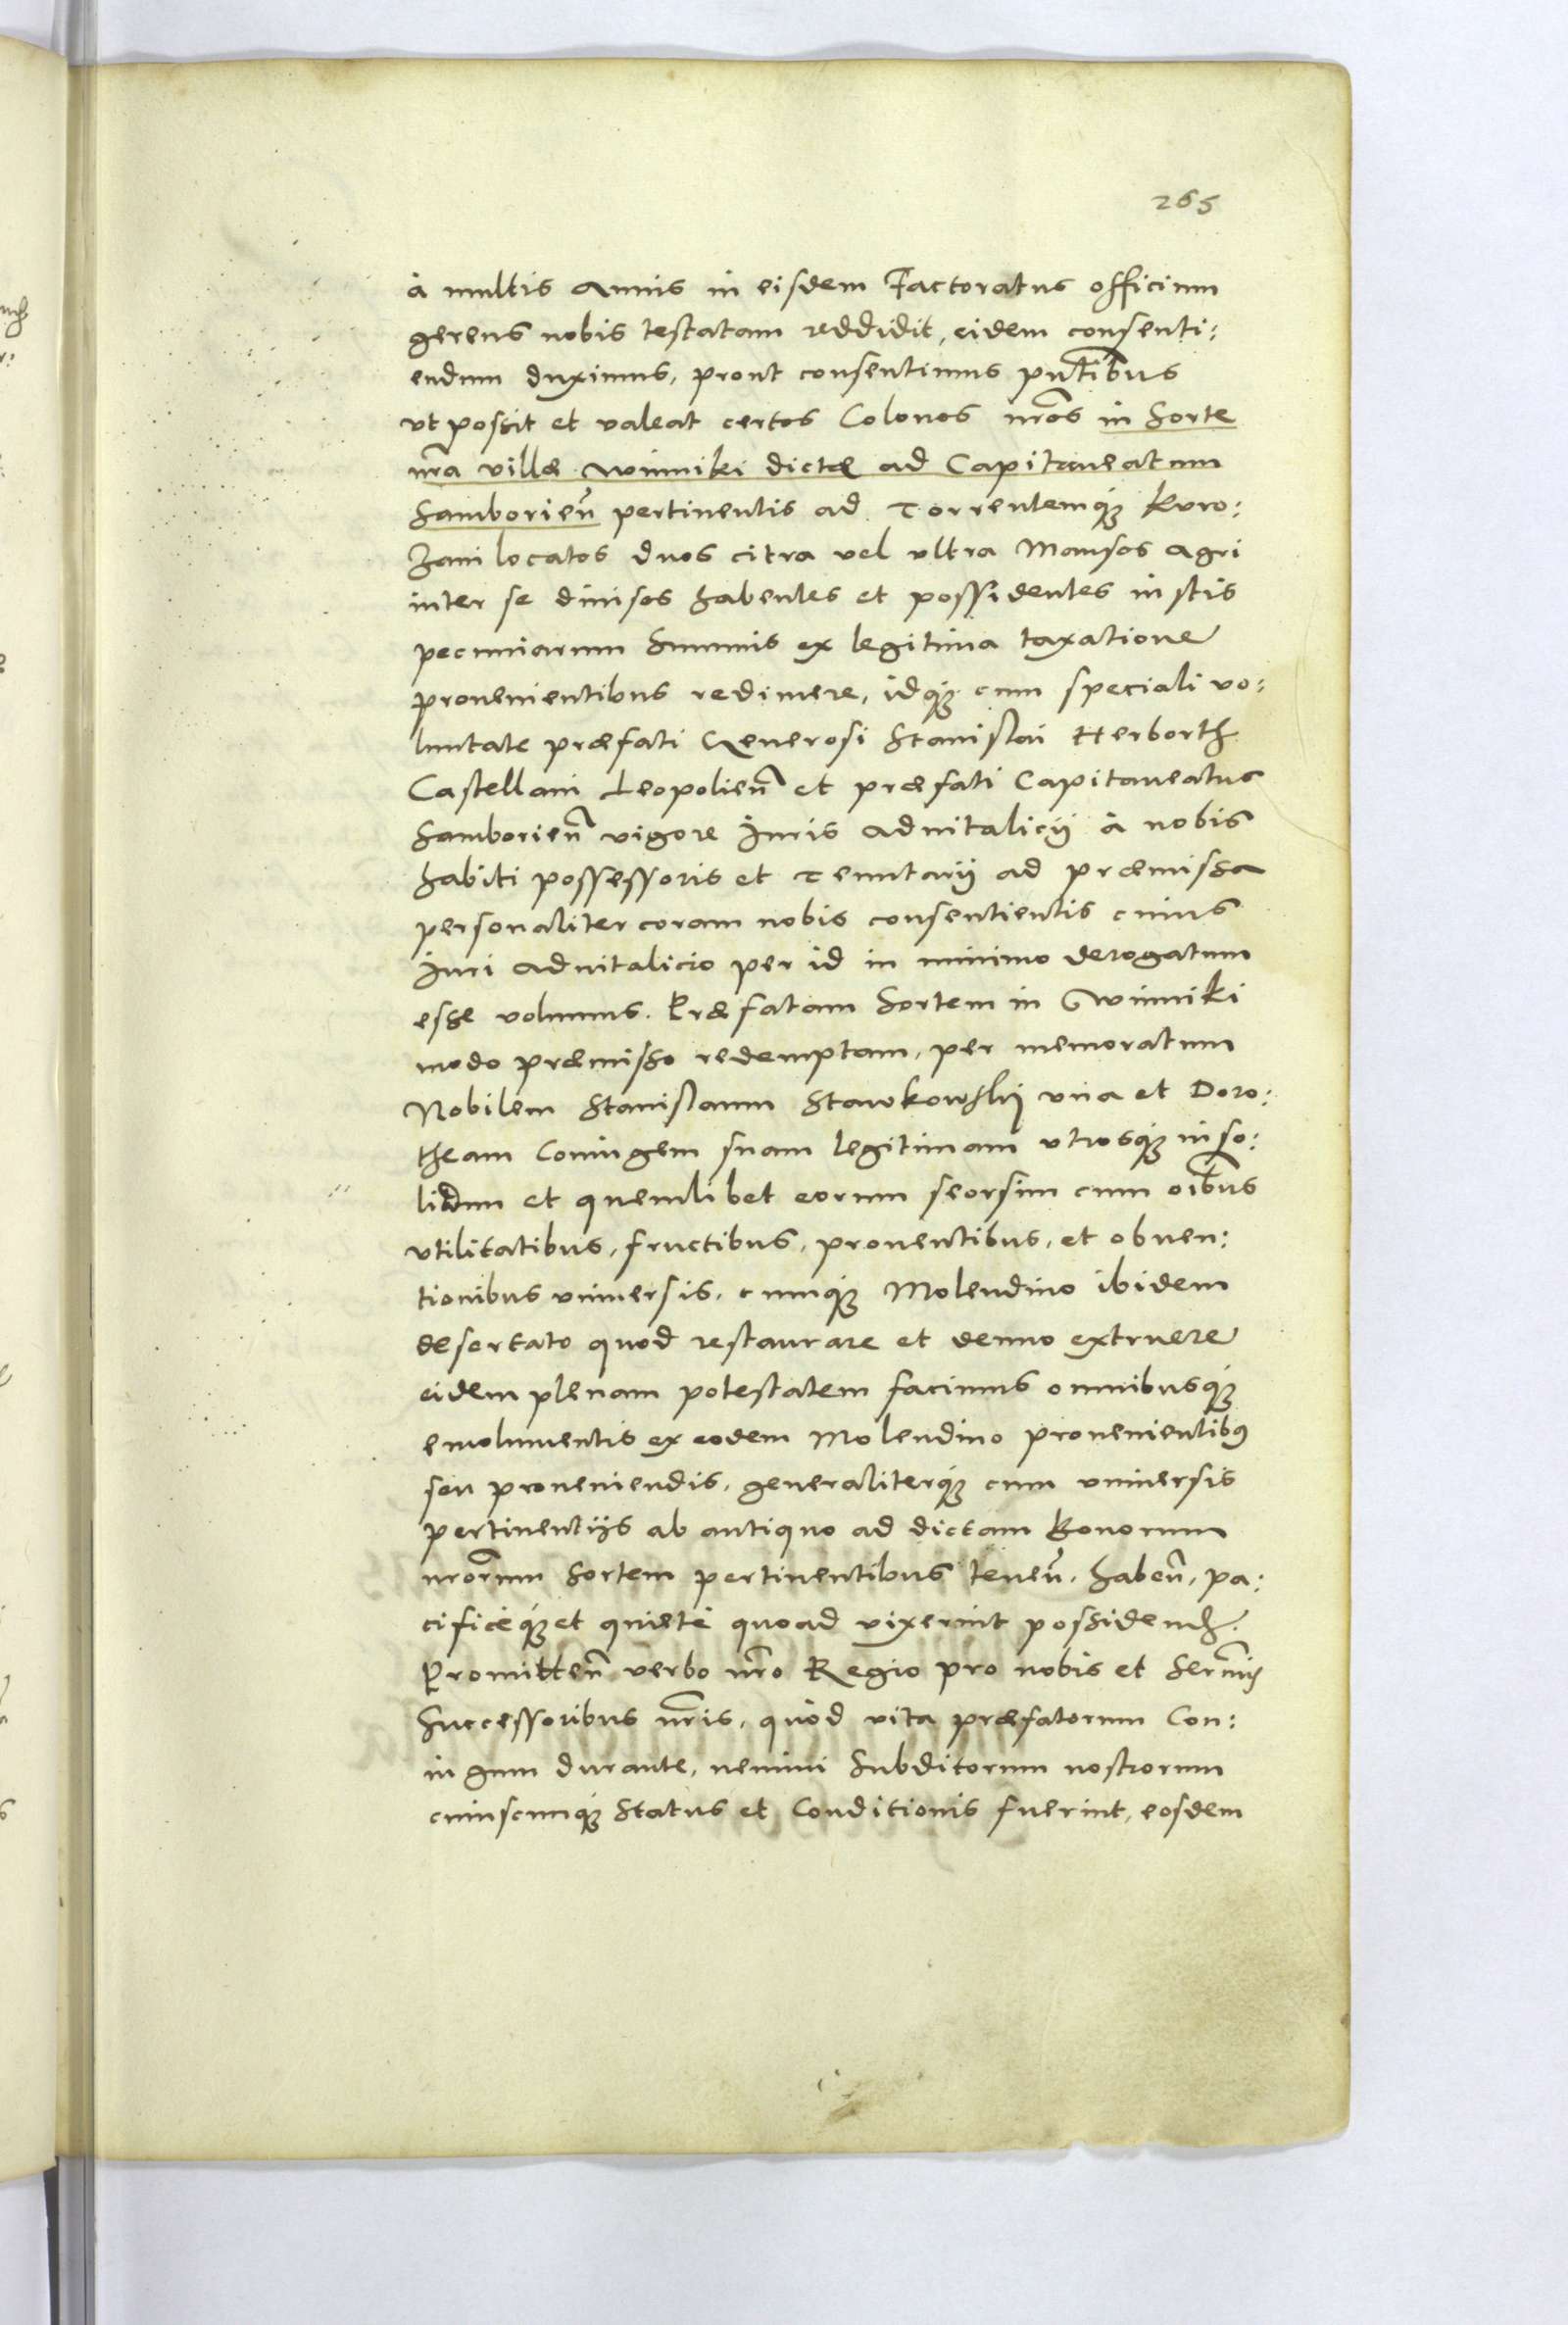 265
à multis annis in eisdem Factoratus officium
gerens nobis testatam reddidit, eidem consenti:
endum duximus, prout consentimus pntibus
vt possit et valeat certos Colonos nros in sorte
nra villæ winniki dictæ ad Capitaneatum
Samborien pertinentis ad Torrentemq́3 kuro:
zani locatos duos citra vel vltra Mansos agri
inter se diuisos habentes et possidentes in stis
pecuniarum summis ex legitima taxatione
prouenientibus redimere, idq́3 cum speciali vo:
luntate præfati Generosi Stanislai Herborth
Castellani Leopolien et præfati Capitaneatus
Samborien vigore Iuris aduitalicij à nobis
habiti possessoris et Tenutarij ad præmissa
personaliter coram nobis consentientis cuius
Iuri aduitalicio per id in minimo derogatum
esse volumus. Præfatam sortem in Gwinniki
modo præmisso redemptam, per memoratum
Nobilem Stanislaum Stawkowskij vna et Doro:
theam Coniugem suam legitimam vtrosq́3 in so:
lidum et quemlibet eorum seorsim cum oibus
vtilitatibus, fructibus, prouentibus, et obuen:
tionibus vniuersis, cumq́3 Molendino ibidem
desertato quod restaurare et denuo extruere
eidem plenam potestatem facimus omnibusq́3
emolumentis ex eodem Molendino prouenientib9
seu proueniendis, generaliterq́3 cum vniuersis
pertinentijs ab antiquo ad dictam Bonorum
nrorum sortem pertinentibus tenen, haben, pa:
cificèq́3 et quietè quoad vixerint possidend.
Promitten verbo nro Regio pro nobis et Sermis
Successoribus nris, quòd vita præfatorum Con:
iugum durante, nemini Subditorum nostrorum
cuiuscunq́3 Status et Conditionis fuerint, eosdem